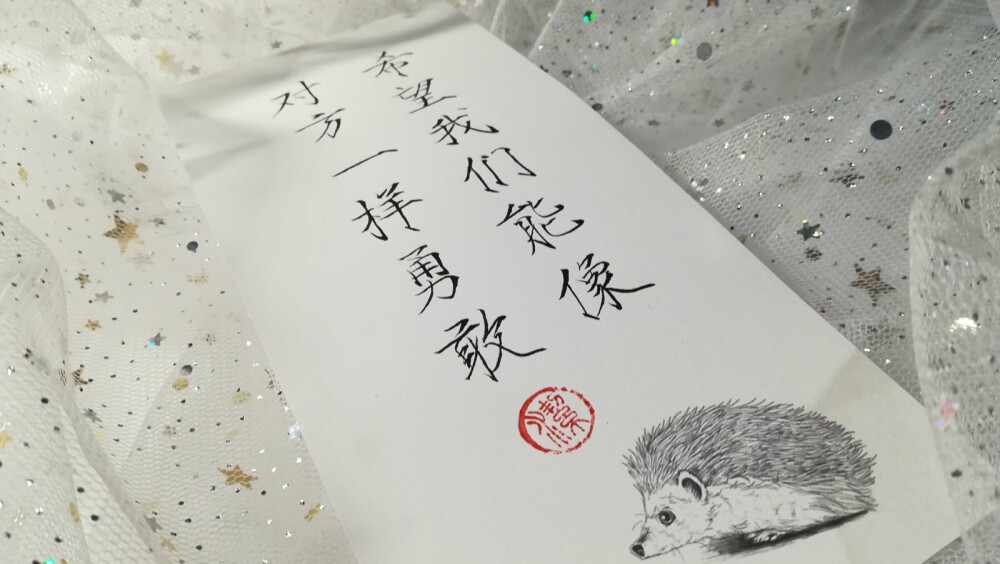 希望我们能像
对方一样勇敢